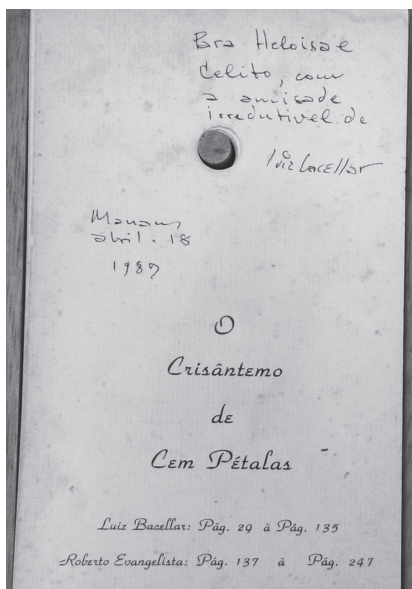 Bra Heloisa e
Celito, com
a amizade
irredutível de
Luiz Bacellar
Manaus,
abril. 18
1987
O
Crisântemo
de
Cem Pétalas
Luiz Bacellar: Pág. 29 à Pág. 135
Roberto Evangelista: Pág. 137 à Pág. 247